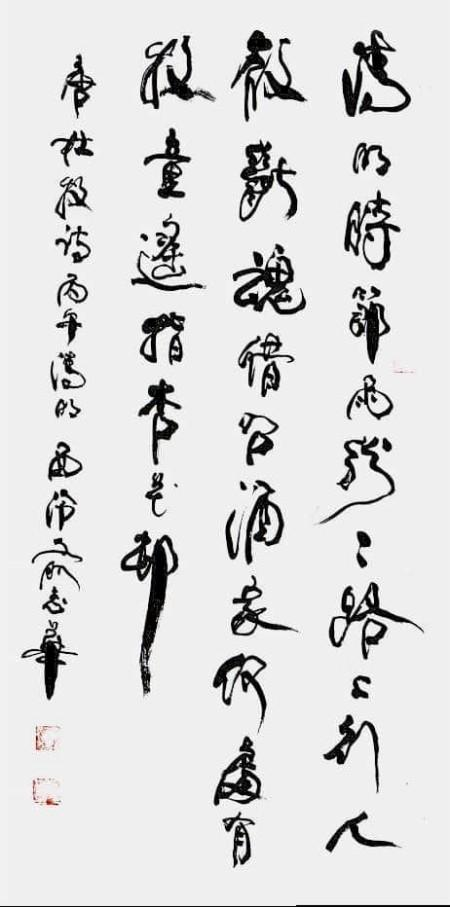 清明時節雨紛々路上行人
欲斷魂借問酒家何處有
牧童遙指杏花邨
唐杜牧詩丙午清明西泠志華